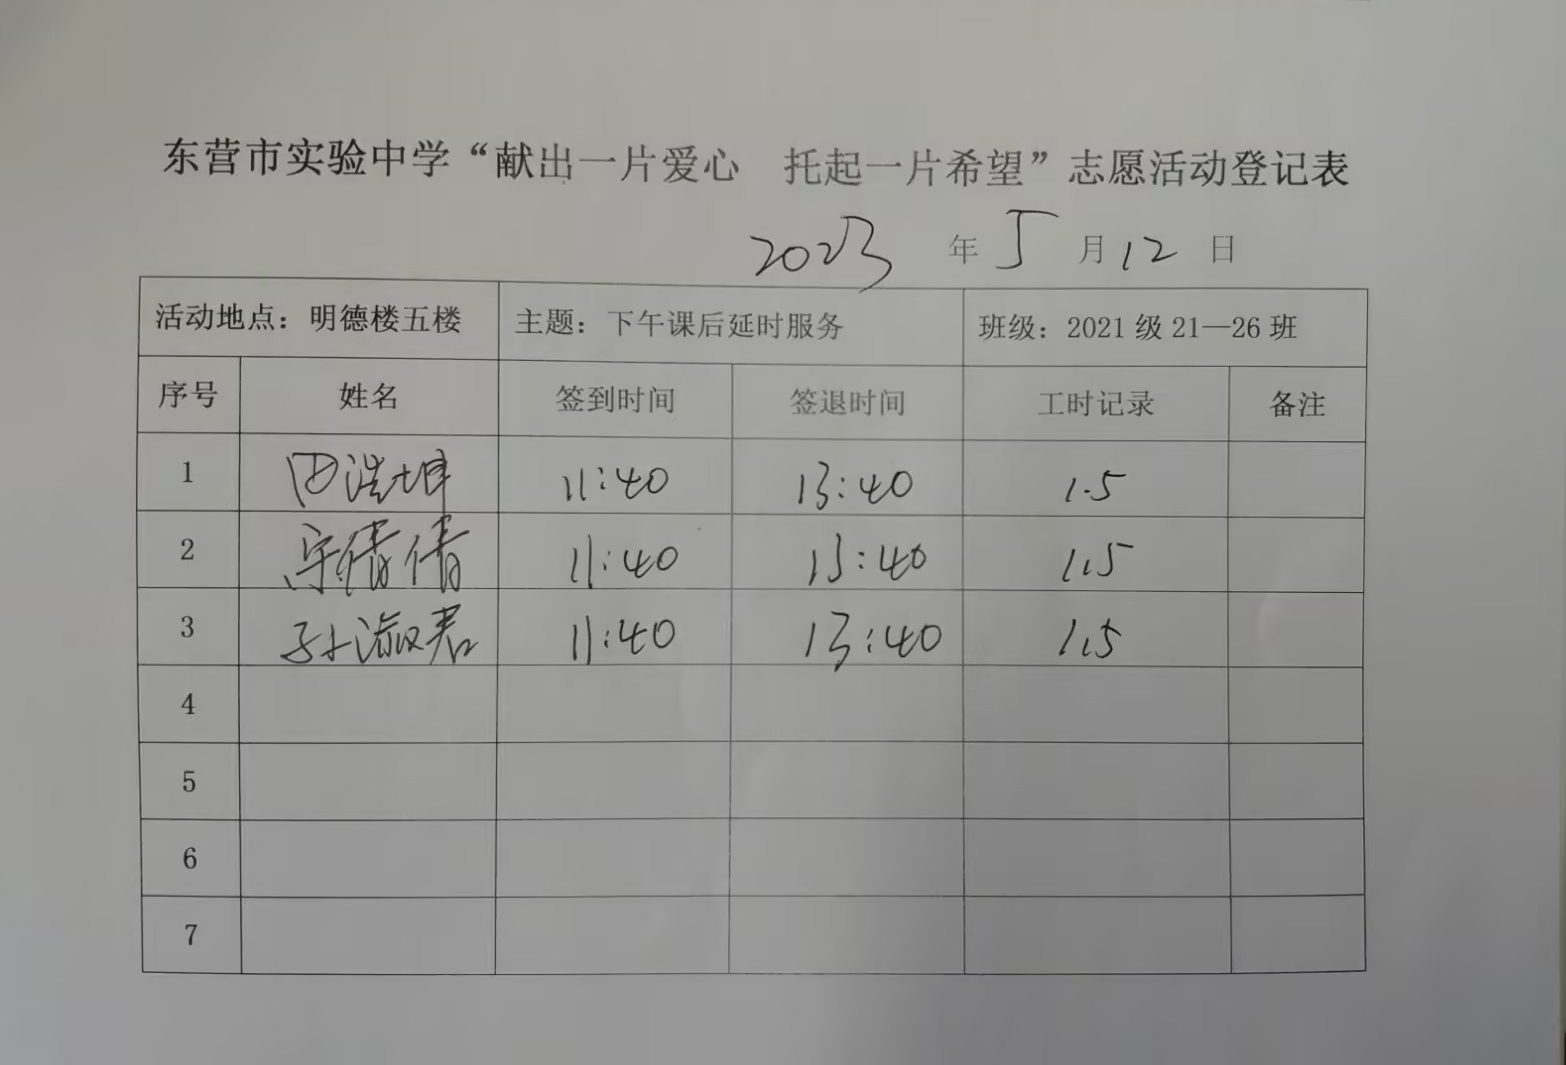 东营市实验中学“献出一片爱心 托起一片希望”志愿活动登记表
2023 年 5 月 12 日
活动地点：明德楼五楼 主题：下午课后延时服务 班级：2021 级 21—26 班
序号 姓名 签到时间 签退时间 工时记录 备注
1 田浩坤 11:40 13:40 1.5
2 倩倩 11:40 13:40 1.5
3 孙淑君 11:40 13:40 1.5
4
5
6
7